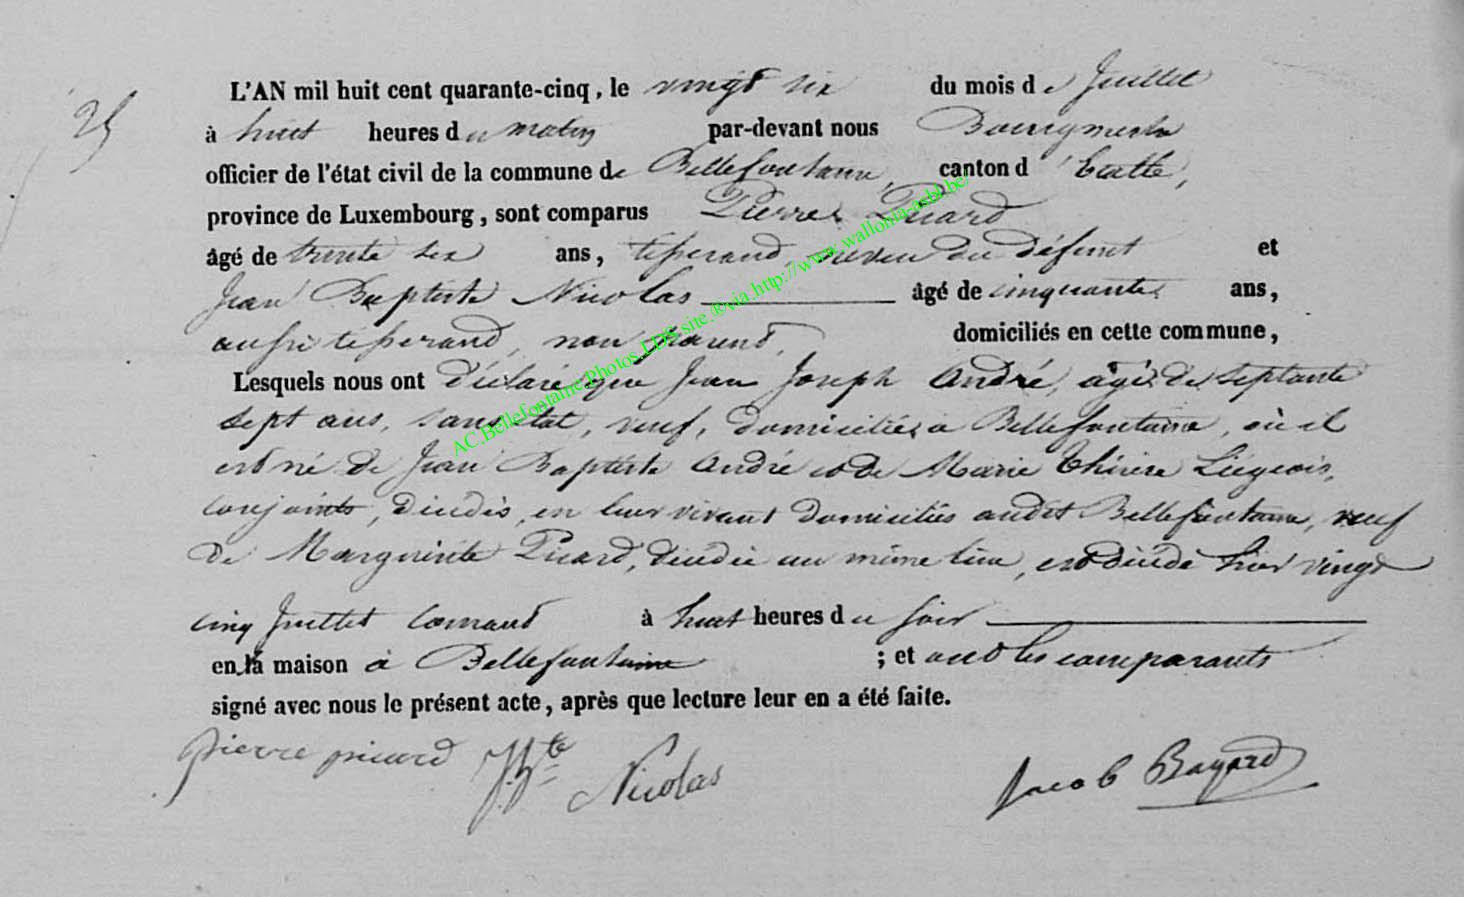 25
L'AN mil huit cent quarante-cinq, le vingt six du mois de Juillet
à huit heures du matin par-devant nous Bourgmestre
officier de l'état civil de la commune de Bellefontaine, canton d'Etalle,
province de Luxembourg, sont comparus Pierre Picard
âgé de trente six ans, tisserand, neveu du défunt et
Jean Baptiste Nicolas âgé de cinquante ans,
aussi tisserand, non parent, domiciliés en cette commune,
Lesquels nous ont déclaré que Jean Joseph André, âgé de septante
sept ans, sans état, veuf, domicilié à Bellefontaine, où il
est né de Jean Baptiste André et de Marie Thérèse Liégeois,
conjoints, décédés, en leur vivant domiciliés audit Bellefontaine, veuf
de Marguerite Picard, décédée au même lieu, est décédé hier vingt
cinq Juillet courant à huit heures du soir
en la maison à Bellefontaine ; et ont les comparants
signé avec nous le présent acte, après que lecture leur en a été faite.
pierre picard J. Bte Nicolas Jacob Bayard
AC.Bellefontaine.Photos.LDS site ®via http://www.wallonia-asbl.be/